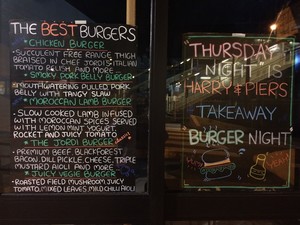 THE BEST BURGERS
* CHICKEN BURGER *
- SUCCULENT FREE RANGE THIGH
BRAISED IN CHEF JORDI'S ITALIAN
TOMATO RELISH AND MORE
* SMOKY PORK BELLY BURGER
- MOUTHWATERING PULLED PORK
BELLY WITH TANGY SLAW
* MOROCCAN LAMB BURGER
- SLOW COOKED LAMB INFUSED
WITH MOROCCAN SPICES SERVED
WITH LEMON MINT YOGURT
ROCKET AND JUICY TOMATO
* THE JORDI BURGER
- PREMIUM BEEF, BLACKFOREST
BACON, DILL PICKLE CHEESE, TRIPLE
MUSTARD AIOLI AND MORE
* JUICY VEGIE BURGER
- ROASTED FIELD MUSHROOM, JUICY
TOMATO, MIXED LEAVES, MILD CHILLI AIOLI
THURSDAY
NIGHT IS
HARRY & PIERS
TAKEAWAY
BURGER NIGHT